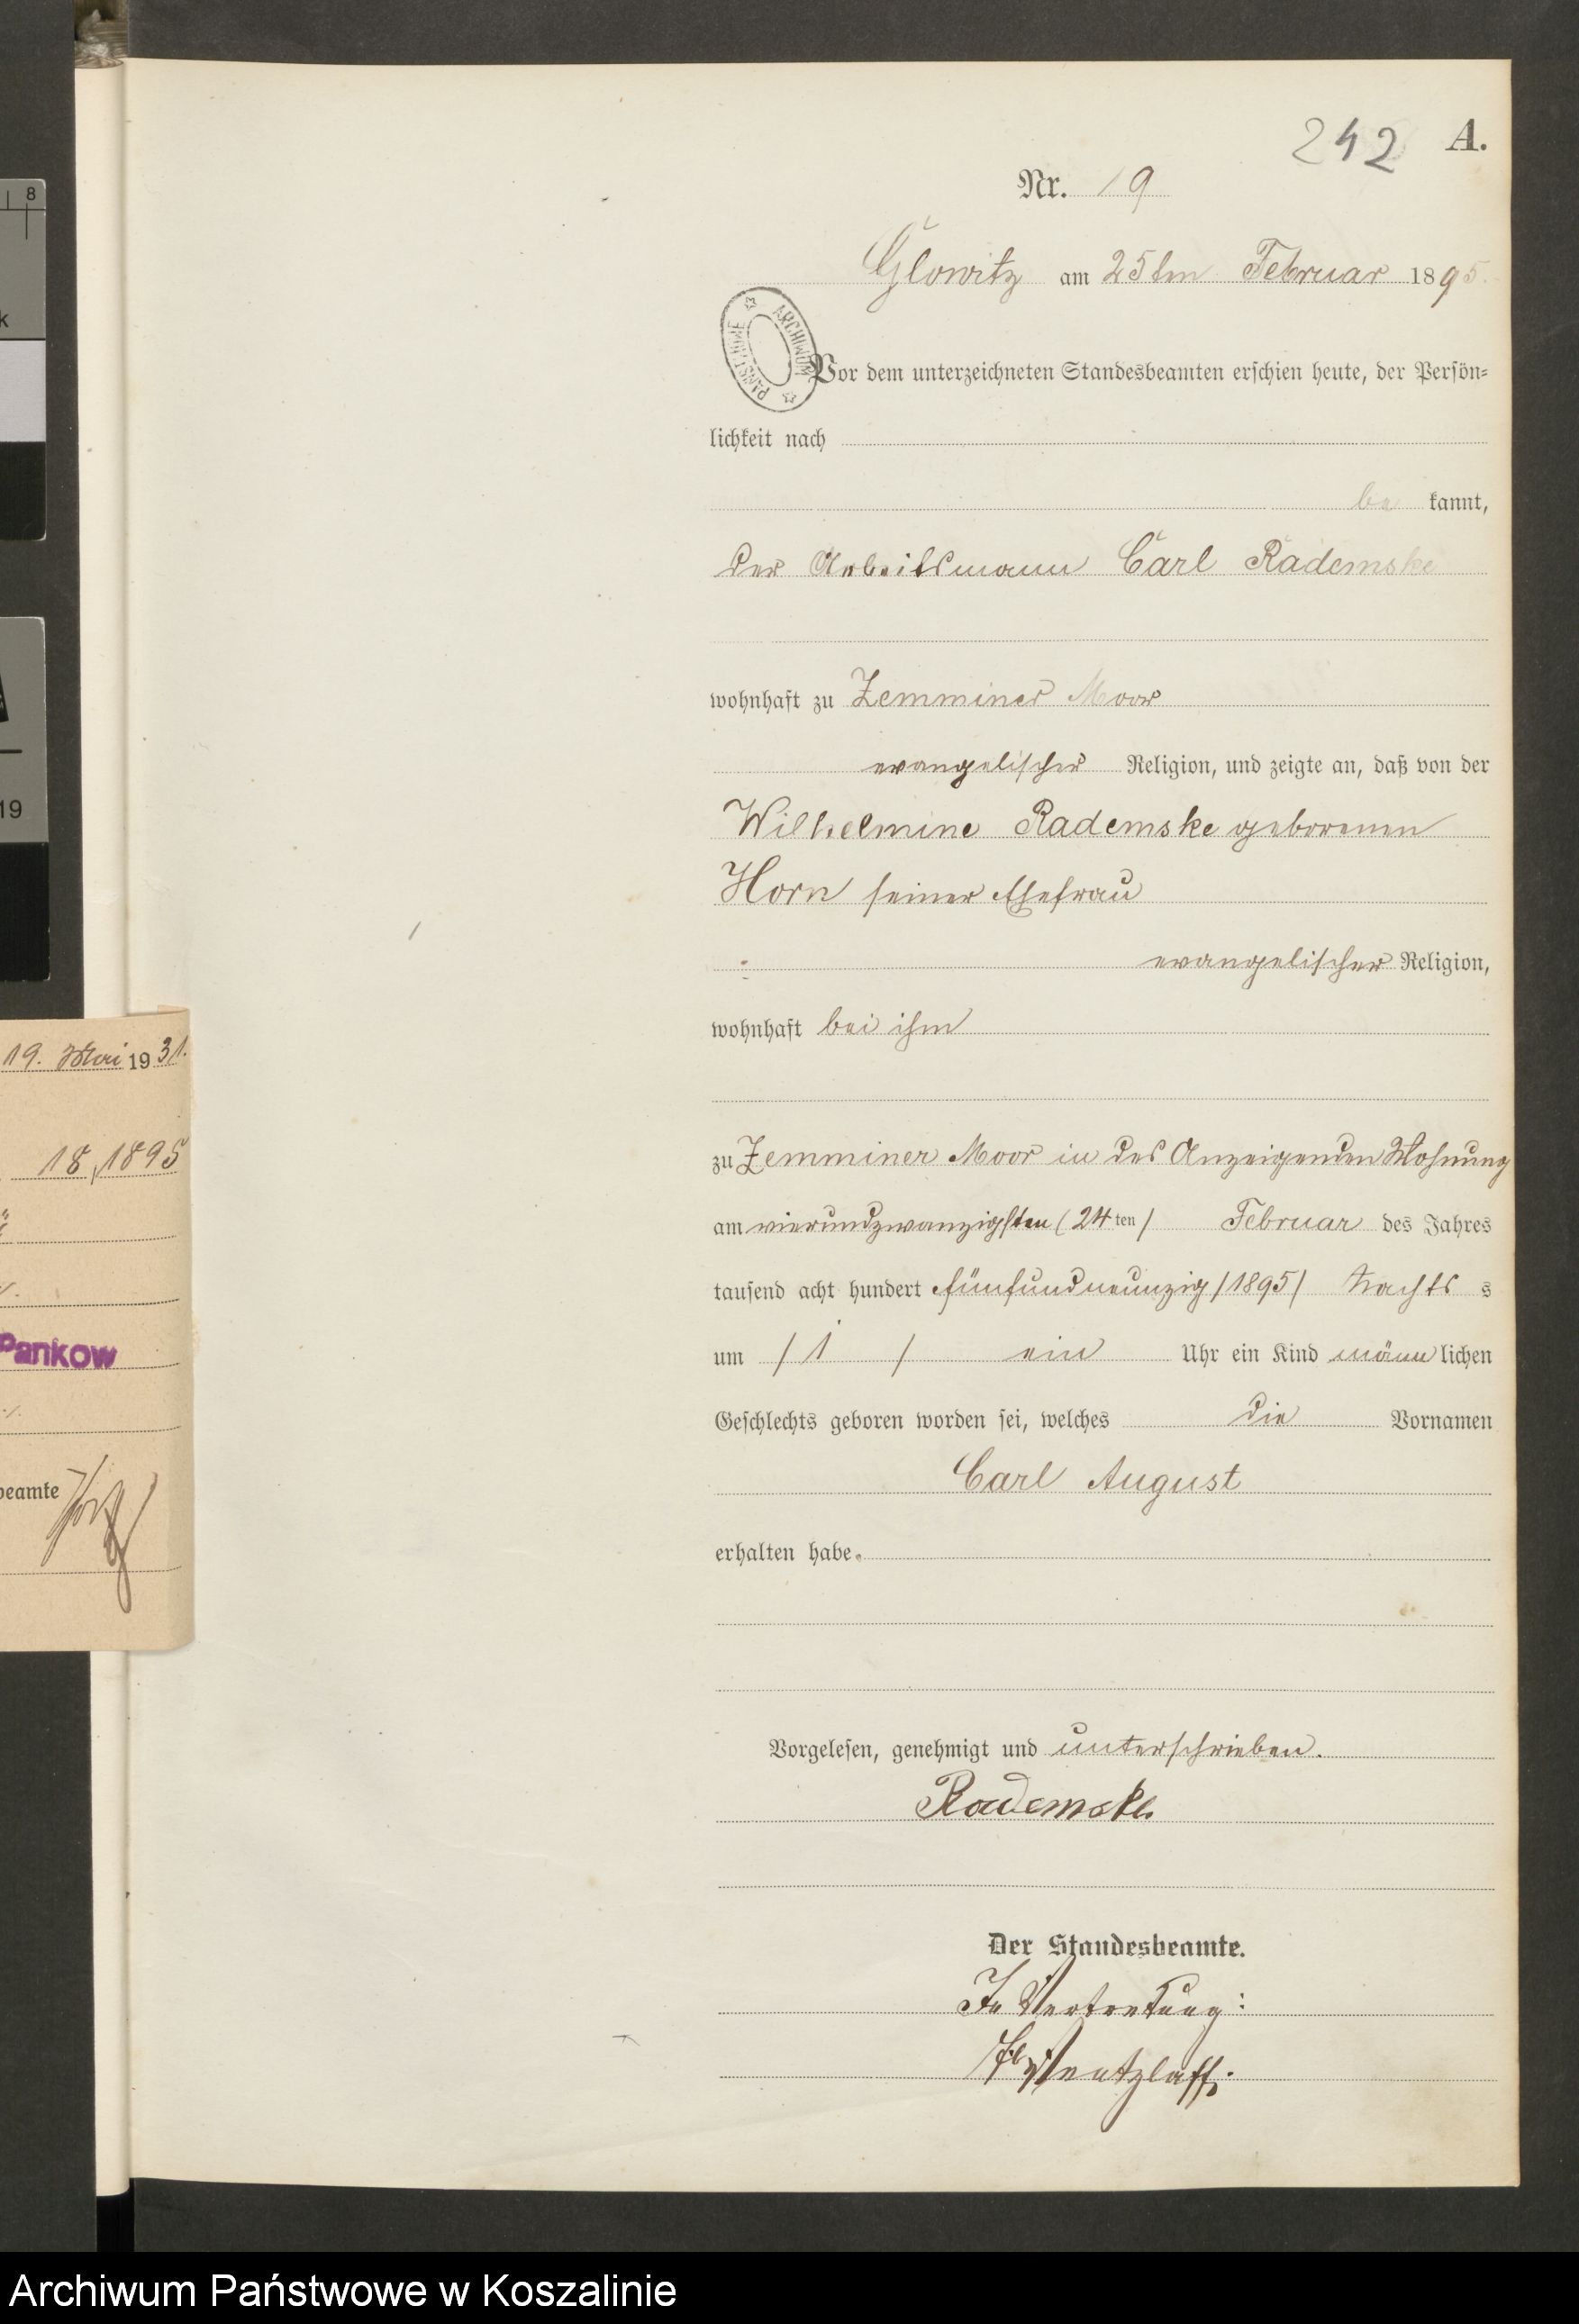 242 A.
Nr. 19
Glowitz am 25ten Februar 1895.
ARCHIWUM PAŃSTWOWE
Vor dem unterzeichneten Standesbeamten erschien heute, der Persön-
lichkeit nach
be kannt,
der Arbeitsmann Carl Rademske
wohnhaft zu Zemminer Moor
evangelischer Religion, und zeigte an, daß von der
Wilhelmine Rademske geborenen
Horn seiner Ehefrau
evangelischer Religion,
wohnhaft bei ihm
zu Zemminer Moor in des Anzeigenden Wohnung
am vierundzwanzigsten (24ten) Februar des Jahres
tausend acht hundert fünfundneunzig /1895/ Nachts s
um /1 / ein Uhr ein Kind männ lichen
Geschlechts geboren worden sei, welches die Vornamen
Carl August
erhalten habe.
Vorgelesen, genehmigt und unterschrieben.
Rademske
Der Standesbeamte.
In Vertretung:
Ventzlaff.
8
k
19
19. Mai 1931.
18, 1895
Pankow
beamte
Archiwum Państwowe w Koszalinie